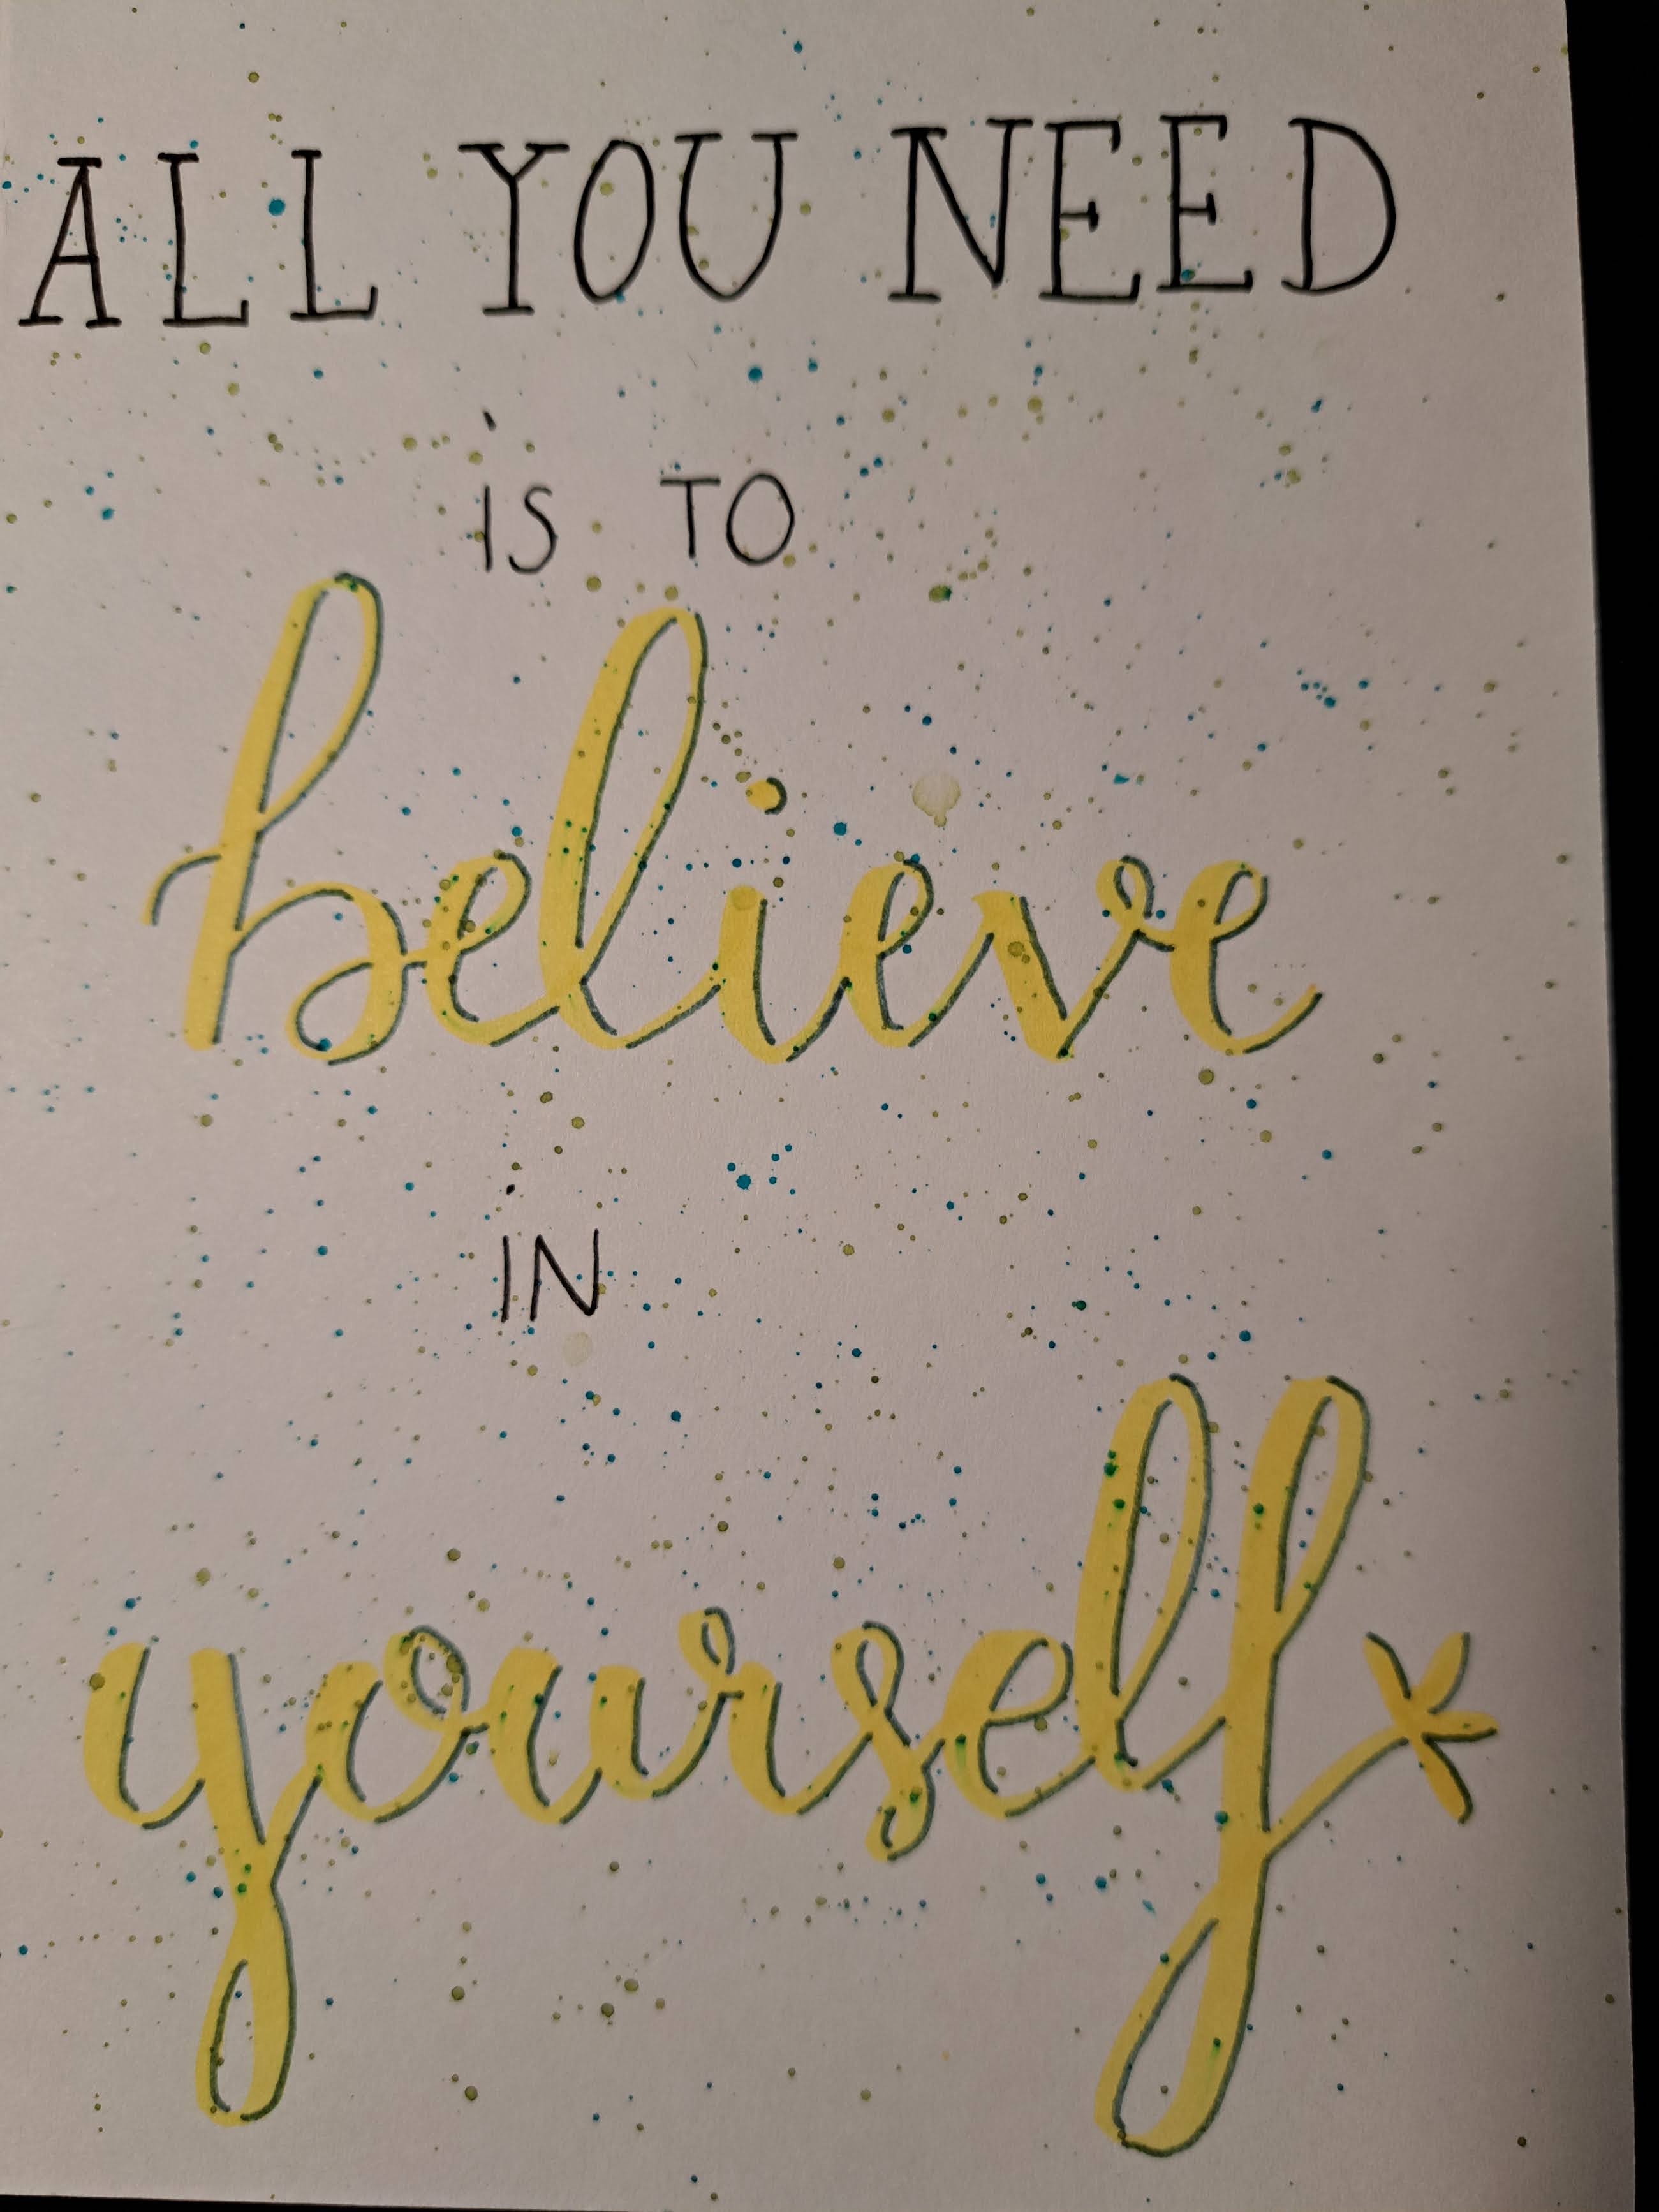 ALL YOU NEED
iS TO
believe
iN
yourself